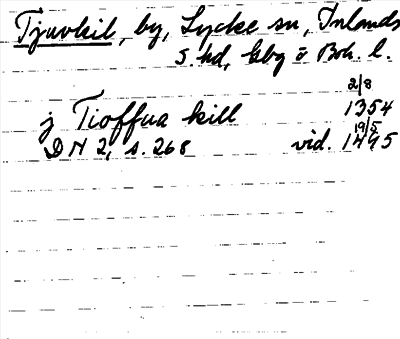 Tjuvkil, by, Lycke sn, Inlands
s. hd, Gbg o Boh. l.
2/8
j Tioffua kill 1354
19/5
DN 2, s. 268 vid. 1495